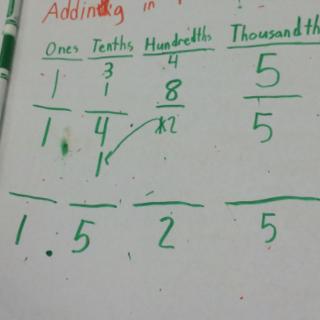 Adding in
Ones Tenths Hundredths Thousandth
3 4
1 1 8 5
1 4 12 5
1
1 . 5 2 5